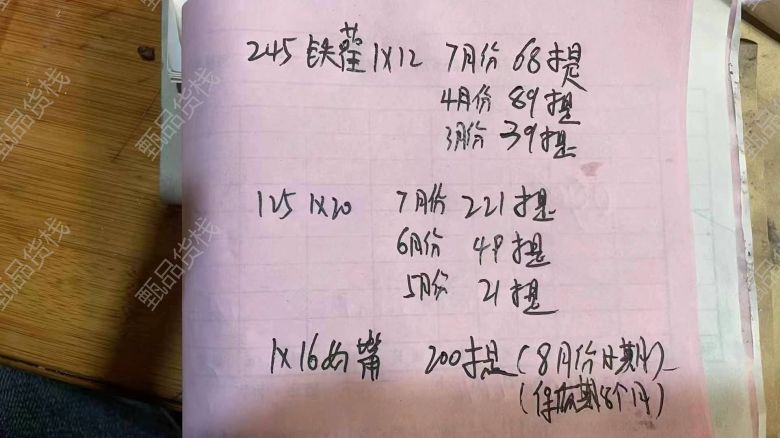 245 铁 1X12 7月份 68提
4月份 89提
3月份 39提
125 1X20 7月份 221提
6月份 49提
5月份 21提
1X16 嘴 200提 (8月份日期)
(保质期8个月)
甄品货栈
甄品货栈
甄品货栈
甄品货栈
甄品货栈
甄品货栈
甄品货栈
甄品货栈